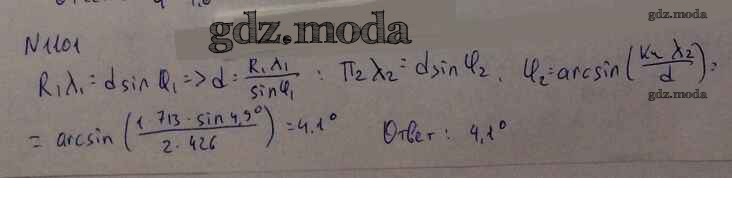 gdz.moda
gdz.moda
N1101
R₁λ₁ = d sin φ₁ => d = R₁λ₁ / sin φ₁ : П₂λ₂ = d sin φ₂. φ₂ = arcsin (K₂ λ₂ / d) =
gdz.moda
= arcsin (1·713·sin 4,9° / 2·426) = 4.1° Ответ: 4,1°